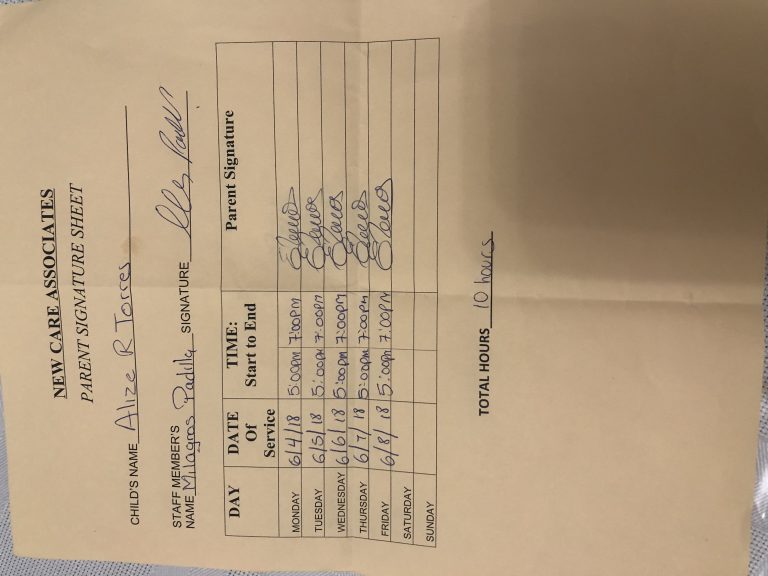 NEW CARE ASSOCIATES
PARENT SIGNATURE SHEET
CHILD'S NAME Alize R Torres
STAFF MEMBER'S
NAME Milagros Padilla SIGNATURE
DAY DATE Of Service TIME: Start to End Parent Signature
MONDAY 6/4/18 5:00pm 7:00pm
TUESDAY 6/5/18 5:00pm 7:00pm
WEDNESDAY 6/6/18 5:00pm 7:00pm
THURSDAY 6/7/18 5:00pm 7:00pm
FRIDAY 6/8/18 5:00pm 7:00pm
SATURDAY
SUNDAY
TOTAL HOURS 10 hours